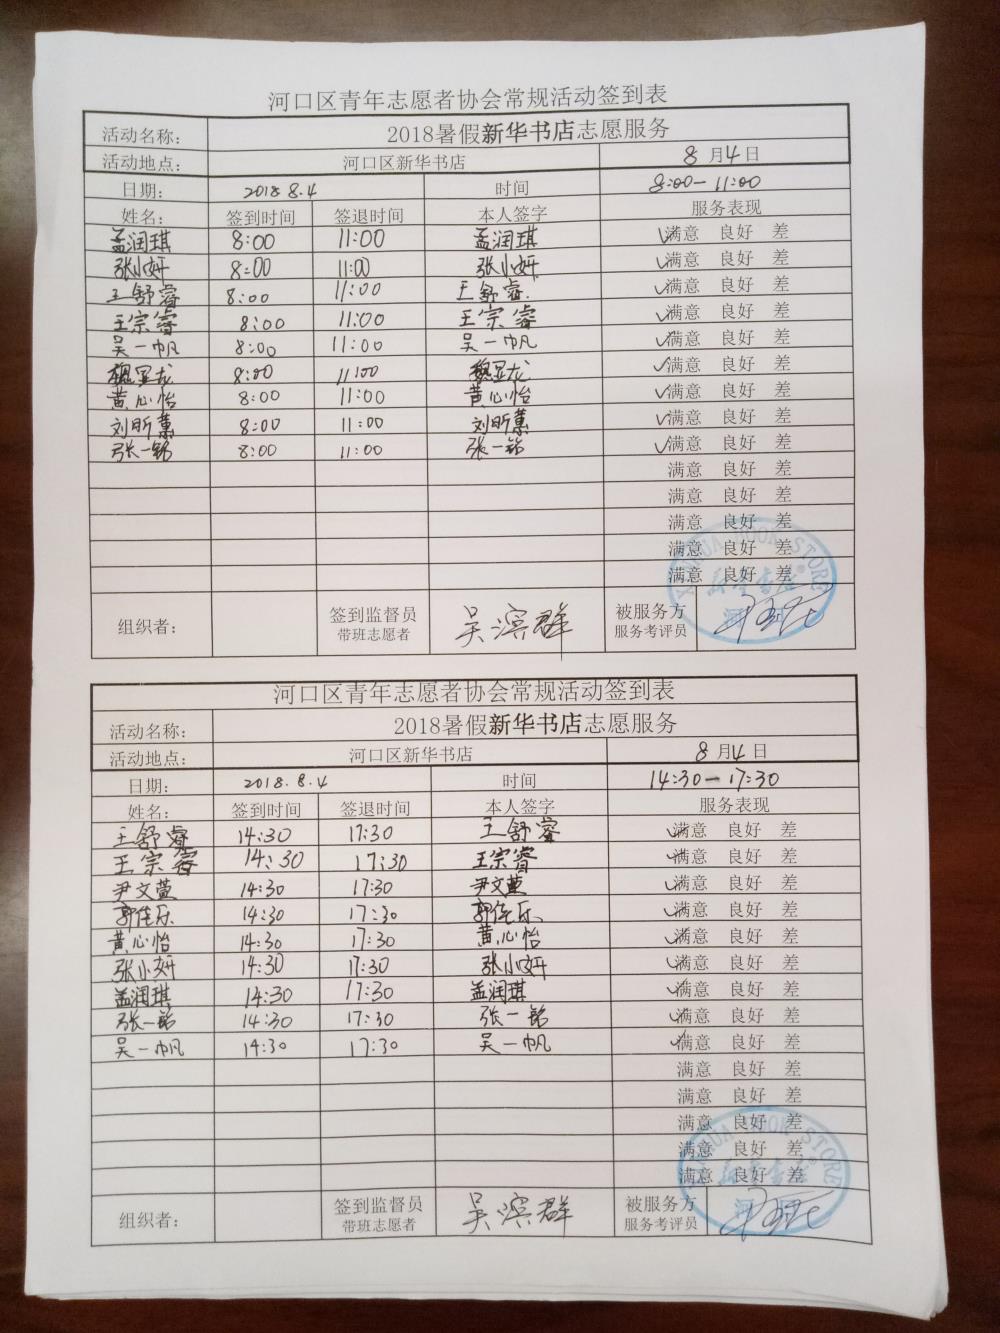 河口区青年志愿者协会常规活动签到表
活动名称: 2018暑假新华书店志愿服务
活动地点: 河口区新华书店 8月4日
日期: 2018.8.4 时间 8:00-11:00
姓名: 签到时间 签退时间 本人签字 服务表现
孟润琪 8:00 11:00 孟润琪 ✓满意 良好 差
张小妍 8:00 11:00 张小妍 ✓满意 良好 差
王舒睿 8:00 11:00 王舒睿 ✓满意 良好 差
王宗睿 8:00 11:00 王宗睿 ✓满意 良好 差
吴一帆 8:00 11:00 吴一帆 ✓满意 良好 差
魏显龙 8:00 11:00 魏显龙 ✓满意 良好 差
黄心怡 8:00 11:00 黄心怡 ✓满意 良好 差
刘昕蕙 8:00 11:00 刘昕蕙 ✓满意 良好 差
张一铭 8:00 11:00 张一铭 ✓满意 良好 差
满意 良好 差
满意 良好 差
满意 良好 差
满意 良好 差
满意 良好 差
XINHUA BOOK STORE
新华书店®
组织者: 签到监督员 吴滨群 被服务方
带班志愿者 服务考评员
河口区青年志愿者协会常规活动签到表
活动名称: 2018暑假新华书店志愿服务
活动地点: 河口区新华书店 8月4日
日期: 2018.8.4 时间 14:30-17:30
姓名: 签到时间 签退时间 本人签字 服务表现
王舒睿 14:30 17:30 王舒睿 ✓满意 良好 差
王宗睿 14:30 17:30 王宗睿 ✓满意 良好 差
尹文萱 14:30 17:30 尹文萱 ✓满意 良好 差
郭佳乐 14:30 17:30 郭佳乐 ✓满意 良好 差
黄心怡 14:30 17:30 黄心怡 ✓满意 良好 差
张小妍 14:30 17:30 张小妍 ✓满意 良好 差
孟润琪 14:30 17:30 孟润琪 ✓满意 良好 差
张一铭 14:30 17:30 张一铭 ✓满意 良好 差
吴一帆 14:30 17:30 吴一帆 ✓满意 良好 差
满意 良好 差
满意 良好 差
满意 良好 差
满意 良好 差
满意 良好 差
XINHUA BOOK STORE
新华书店®
组织者: 签到监督员 吴滨群 被服务方
带班志愿者 服务考评员